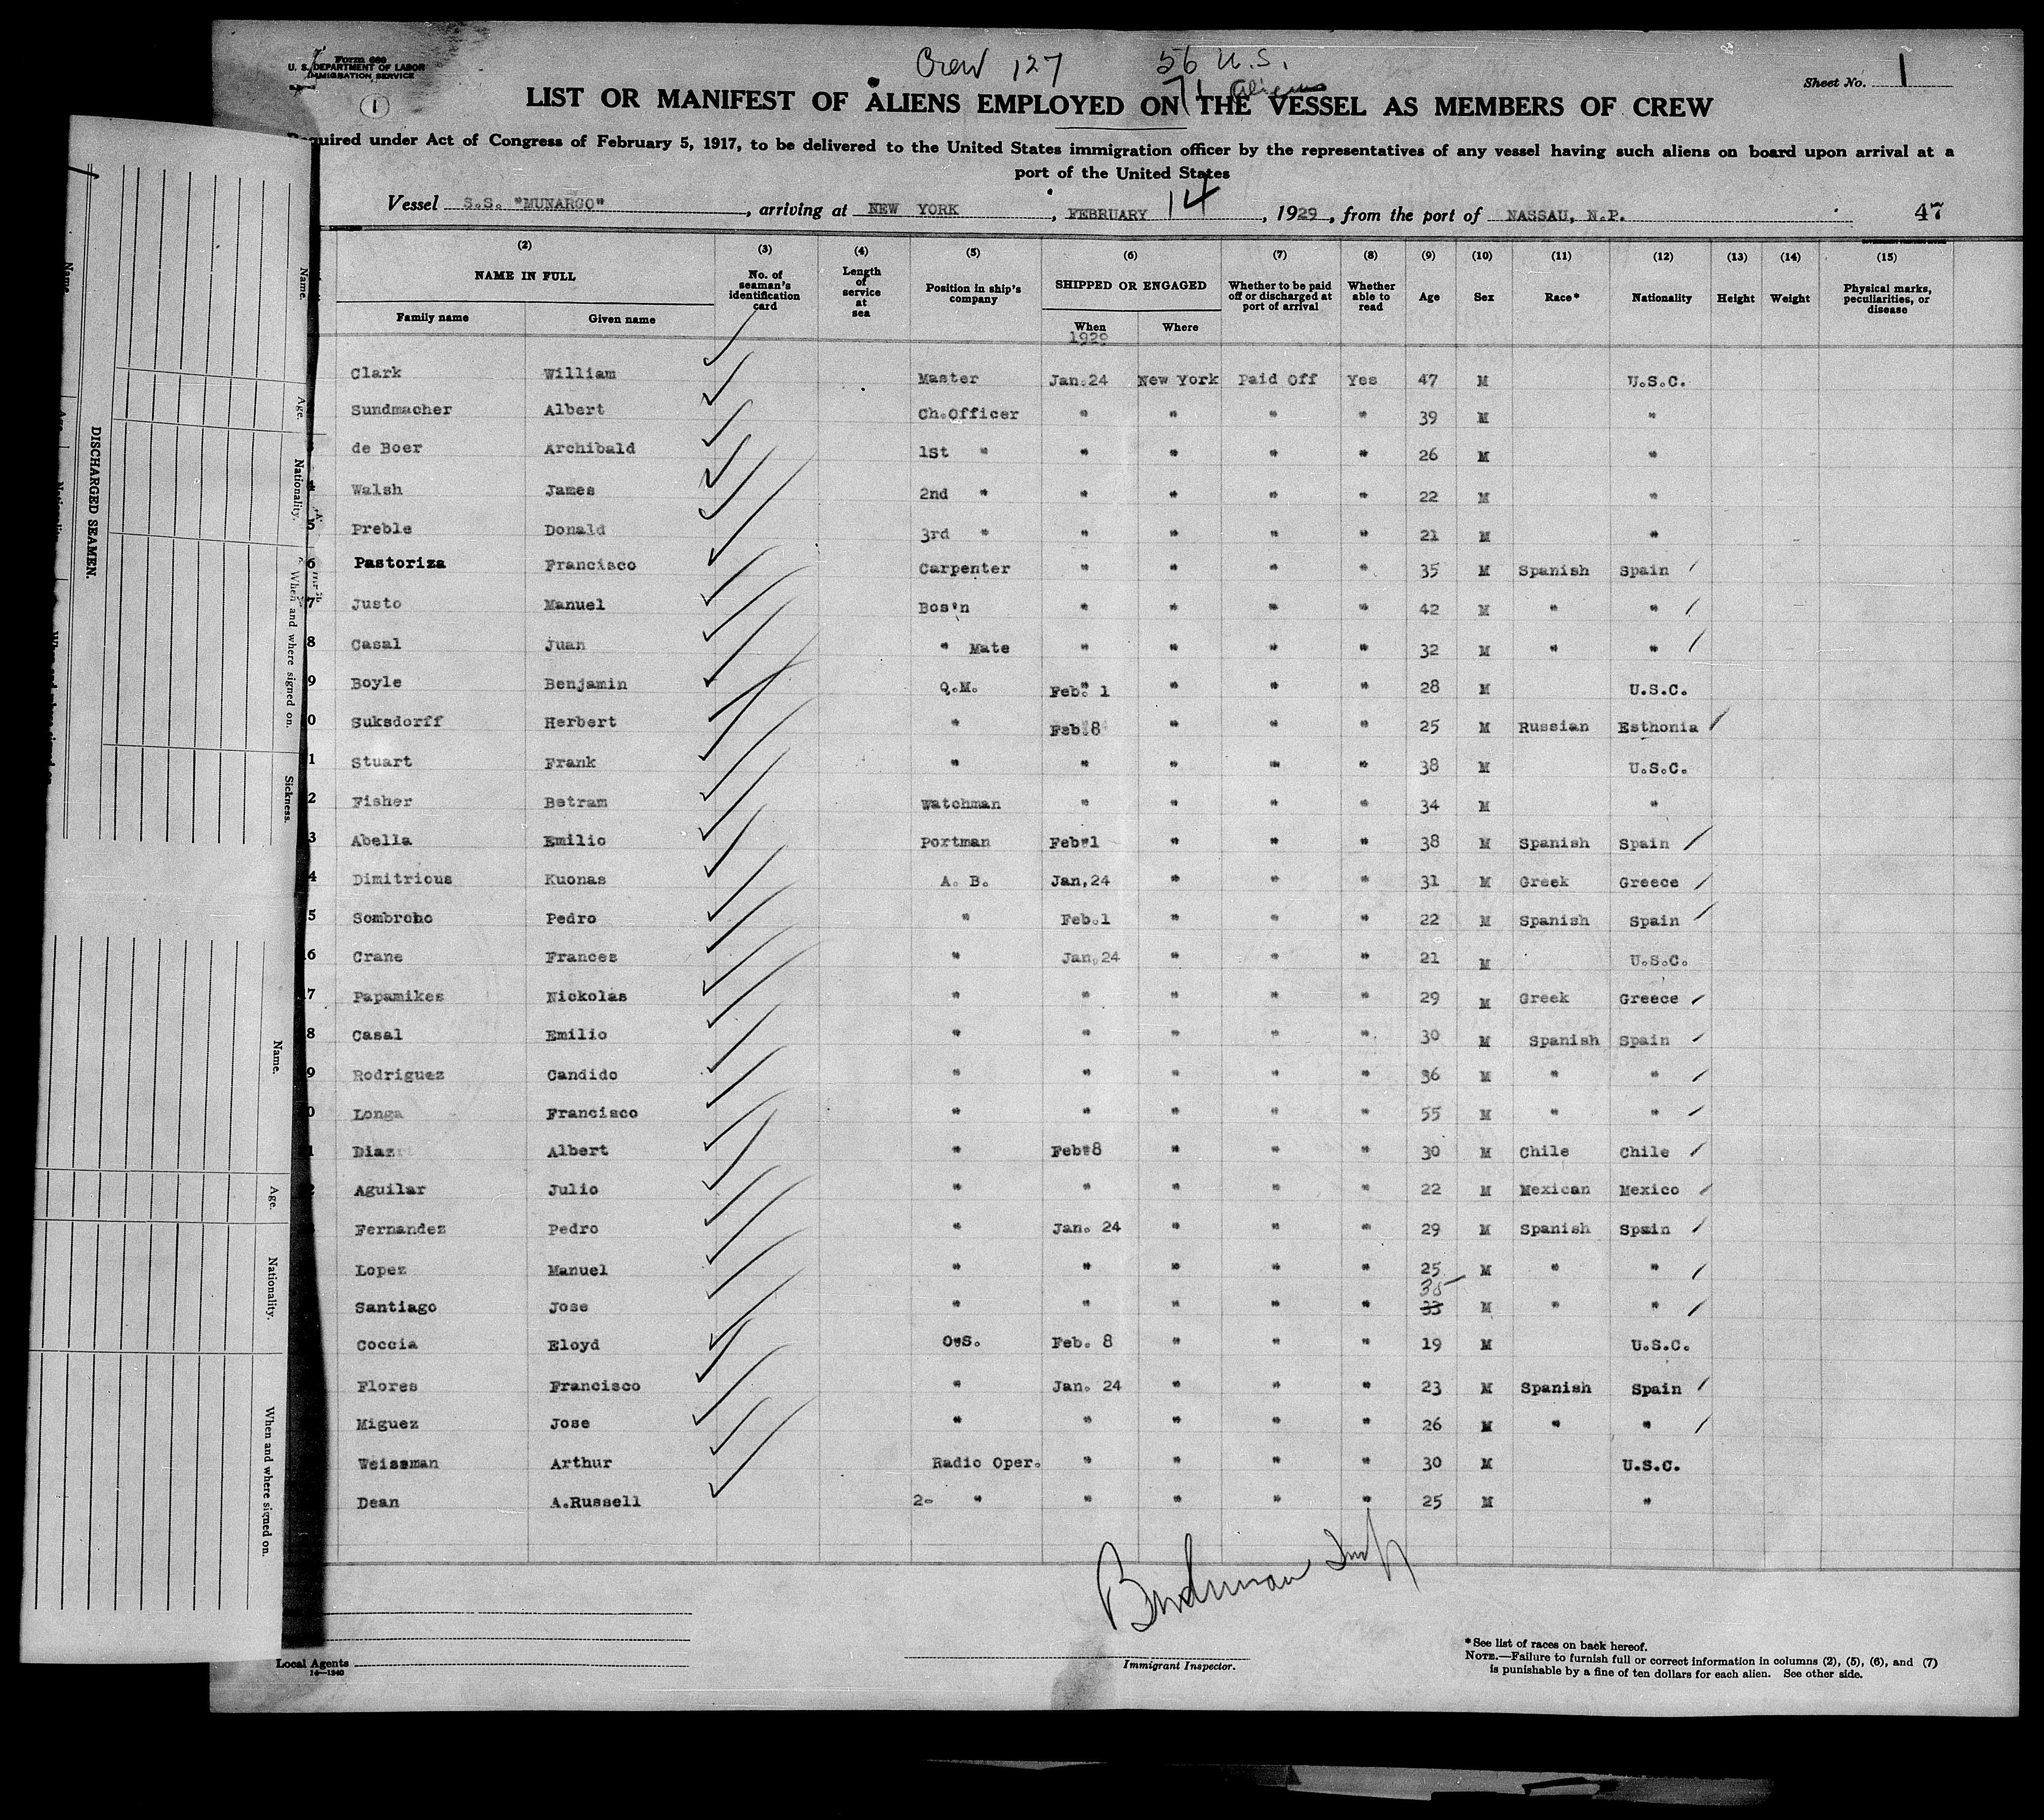 Form 680
U. S. DEPARTMENT OF LABOR
IMMIGRATION SERVICE
1
Crew 127 56 U.S.
71 Aliens
Sheet No. 1
LIST OR MANIFEST OF ALIENS EMPLOYED ON THE VESSEL AS MEMBERS OF CREW
Required under Act of Congress of February 5, 1917, to be delivered to the United States immigration officer by the representatives of any vessel having such aliens on board upon arrival at a
port of the United States
Vessel S.S. "MUNARGO", arriving at NEW YORK, FEBRUARY 14, 1929, from the port of NASSAU, N.P. 47
(2) (3) (4) (5) (6) (7) (8) (9) (10) (11) (12) (13) (14) (15)
NAME IN FULL
Family name Given name
No. of seaman's identification card
Length of service at sea
Position in ship's company
SHIPPED OR ENGAGED
When Where
1929
Whether to be paid off or discharged at port of arrival
Whether able to read
Age Sex Race* Nationality Height Weight
Physical marks, peculiarities, or disease
Clark William Master Jan.24 New York Paid Off Yes 47 M U.S.C.
Sundmacher Albert Ch.Officer " " " " 39 M "
de Boer Archibald 1st " " " " " 26 M "
4 Walsh James 2nd " " " " " 22 M "
5 Preble Donald 3rd " " " " " 21 M "
6 Pastoriza Francisco Carpenter " " " " 35 M Spanish Spain
7 Justo Manuel Bos'n " " " " 42 M " "
8 Casal Juan " Mate " " " " 32 M " "
9 Boyle Benjamin Q.M. Feb. 1 " " " 28 M U.S.C.
0 Suksdorff Herbert " Feb.8 " " " 25 M Russian Esthonia
1 Stuart Frank " " " " " 38 M U.S.C.
2 Fisher Betram Watchman " " " " 34 M "
3 Abella Emilio Portman Feb.1 " " " 38 M Spanish Spain
4 Dimitrious Kuonas A. B. Jan.24 " " " 31 M Greek Greece
5 Sombroho Pedro " Feb.1 " " " 22 M Spanish Spain
6 Crane Frances " Jan.24 " " " 21 M U.S.C.
7 Papamikes Nickolas " " " " " 29 M Greek Greece
8 Casal Emilio " " " " " 30 M Spanish Spain
9 Rodriguez Candido " " " " " 36 M " "
0 Longa Francisco " " " " " 55 M " "
1 Diaz Albert " Feb.8 " " " 30 M Chile Chile
2 Aguilar Julio " " " " " 22 M Mexican Mexico
Fernandez Pedro " Jan. 24 " " " 29 M Spanish Spain
Lopez Manuel " " " " " 25 M " "
Santiago Jose " " " " " 33 35 M " "
Coccia Eloyd O.S. Feb. 8 " " " 19 M U.S.C.
Flores Francisco " Jan. 24 " " " 23 M Spanish Spain
Miguez Jose " " " " " 26 M " "
Weissman Arthur Radio Oper. " " " " 30 M U.S.C.
Dean A.Russell 2- " " " " " 25 M "
Local Agents
14—1240
Immigrant Inspector.
*See list of races on back hereof.
NOTE.—Failure to furnish full or correct information in columns (2), (5), (6), and (7)
is punishable by a fine of ten dollars for each alien. See other side.
DISCHARGED SEAMEN.
Name. Age. Nationality. When and where signed on. Sickness.
Name. Age. Nationality. When and where signed on.